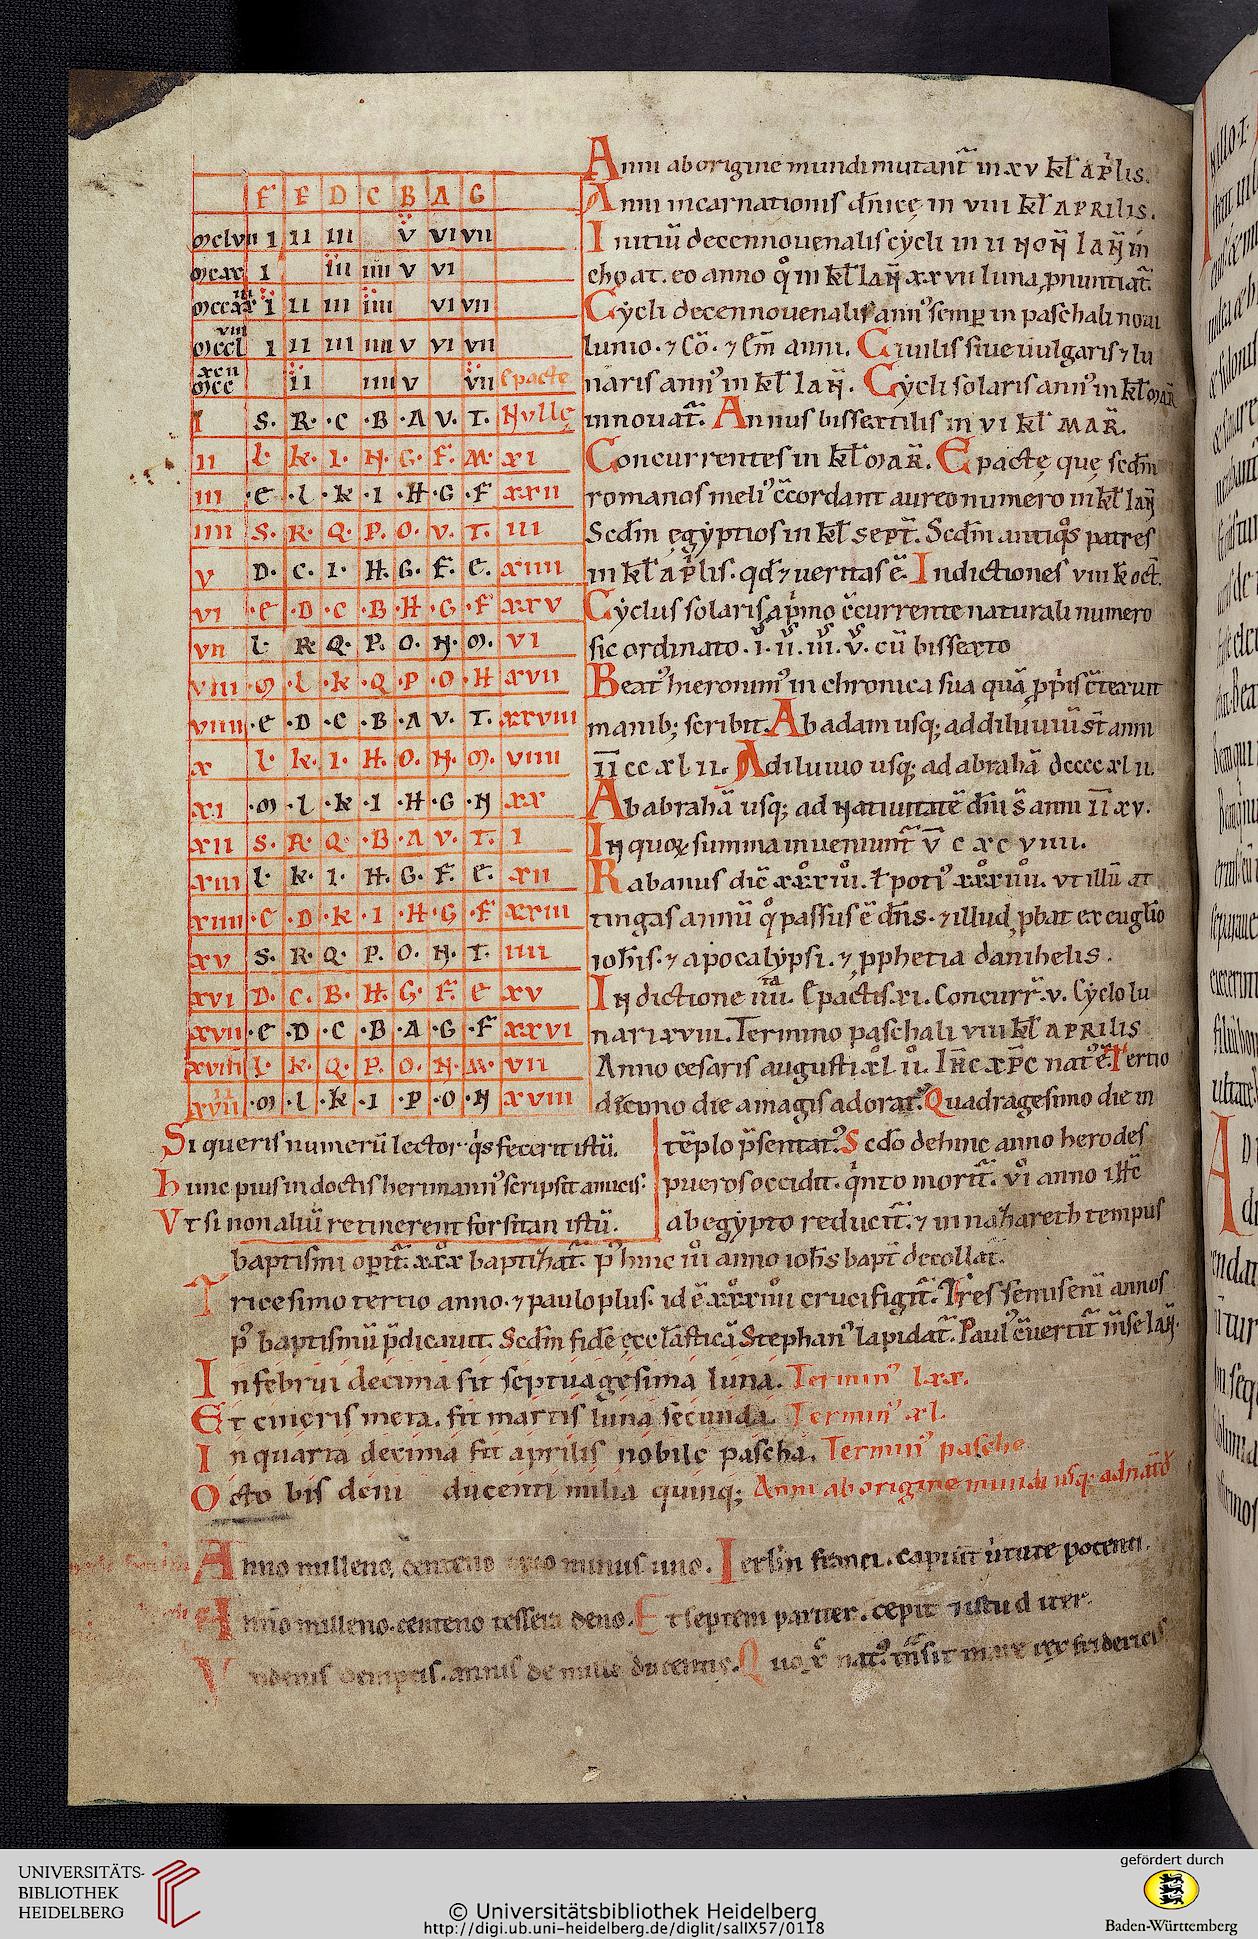 F E D C B A G
mclvii I II III V VI VII
mcxc I III IIII V VI
mccxx I II III IIII VI VII
mccl I II III IIII V VI VII
mcc II IIII V VII Epacte
I S. R. C B A V. T. Nullę
II L. K. I. N. G. F. M. XI
III E L K I H G F XXII
IIII S. R. Q. P. O. V. T. III
V D. C. I. H. G. F. E. XIIII
VI E D C B H G F XXV
VII L. R Q. P. O. N. M. VI
VIII M L K Q P O H XVII
VIIII E D C B A V. T. XXVIII
X L. K. I. H. O. N. M. VIIII
XI M L K I H G N XX
XII S. R. Q. B A V. T. I
XIII L. K. I. H. G. F. E. XII
XIIII E D K I H G F XXIII
XV S. R. Q. P. O. N. T. IIII
XVI D. C. B. H. G. F. E XV
XVII E D C B A G F XXVI
XVIII L. K. Q. P. O. N. M. VII
M L K I P O N XVIII
Anni ab origine mundi mutant̄ in xv kƚ ap̄lis.
Anni incarnationis dn̄icę in viii kƚ aprilis.
Initiū decennouenalis cẏcli in ii non̄ ian̄ in
choat. eo anno qͦ in kƚ ian̄ xxvii luna pronuntiat̄.
Cẏcli decennouenalis annꝰ semꝑ in paschali noui
lunio. ⁊ c̄o. ⁊ em̄ anni. Ciuilis siue uulgaris ⁊ lu
naris annꝰ in kƚ ian̄. Cẏcli solaris annꝰ in kƚ mar̄
innouat̄. Annus bissextilis in vi kƚ mar̄.
Concurrentes in kƚ mar̄. Epactę quę scd̄m
romanos meliꝰ c̄cordant aureo numero in kƚ ian̄
Scd̄m ęgẏptios in kƚ sept̄. Scd̄m antiqͦs patres
in kƚ ap̄lis. qd̄ ⁊ ueritas ē. Indictiones viii k oct̄.
Cẏclus solaris a p̄mo c̄currente naturali numero
sic ordinato. i. ii. iii. v. cū bissexto
Beatꝰ hieronimꝰ in chronica sua quā pp̄is c̄teruit
manib; scribit. Ab adam usq; ad diluuiū st̄ anni
īī cc xl ii. A diluuio usq; ad abrahā dcccc xl ii.
Ab abrahā usq; ad natiuitatē dn̄i s̄ anni īī xv.
In quoꝝ summa inueniunt̄ v̄ c xc viiii.
Rabanus dic̄ xxxiii. ƚ potiꝰ xxxiiii. ut illū at
tingas annū qͦ passus ē dn̄s. ⁊ illud ꝓbat ex euglio
ioh̄is. ⁊ apocalẏpsi. ⁊ ꝓphetia danihelis.
Indictione iiii. Epactis xi. Concurr̄. v. Cẏclo lu
nari xviii. Termino paschali viii kƚ aprilis
Anno cesaris augusti xl ii. ih̄c xp̄c natꝰ ē. Tertio
decimo die a magis adorat̄. Quadragesimo die in
Si queris numerū lector qͥs fecerit istū.
Hunc pius indoctis herimannꝰ scripsit amicis:
Vt si non aliū retinerent forsitan istū.
tēplo p̄sentat̄. Scdo dehinc anno herodes
pueros occidit. qͥnto morit̄. vi anno ih̄c
ab egẏpto reducit̄. ⁊ in nazareth tempus
baptismi oꝑit̄. xxx baptizat̄. pꝰ hinc iii anno ioh̄s bapt̄ decollat̄.
Tricesimo tertio anno. ⁊ paulo plus. id ē xxxiiii crucifigit̄. Tres semis enī annos
pꝰ baptismū p̄dicauit. Scd̄m fidē ęcclāsticā Stephanꝰ lapidat̄. Paulꝰ c̄uertit̄ in se ian̄.
In februi decima sit septuagesima luna. Terminꝰ lxx.
Et cineris meta. fit martis luna secunda. Terminꝰ xl.
In quarta decima fit aprilis nobile pascha. Terminꝰ pasche
Octo bis deni ducenti milia quinq; Anni ab origine mundi usq; ad
Anno milleno, centeno quo minus uno. Ierlm̄ franci. capiūt uirtute potenti.
Anno milleno. centeno tessera deno. Et septem pariter. cepit ⁊ istud iter.
Vndenis demptis. annis de mille ducentis. Quo natꝰ. trāsit mare rex fridericus
UNIVERSITÄTS-
BIBLIOTHEK
HEIDELBERG
© Universitätsbibliothek Heidelberg
http://digi.ub.uni-heidelberg.de/diglit/salIX57/0118
gefördert durch
Baden-Württemberg